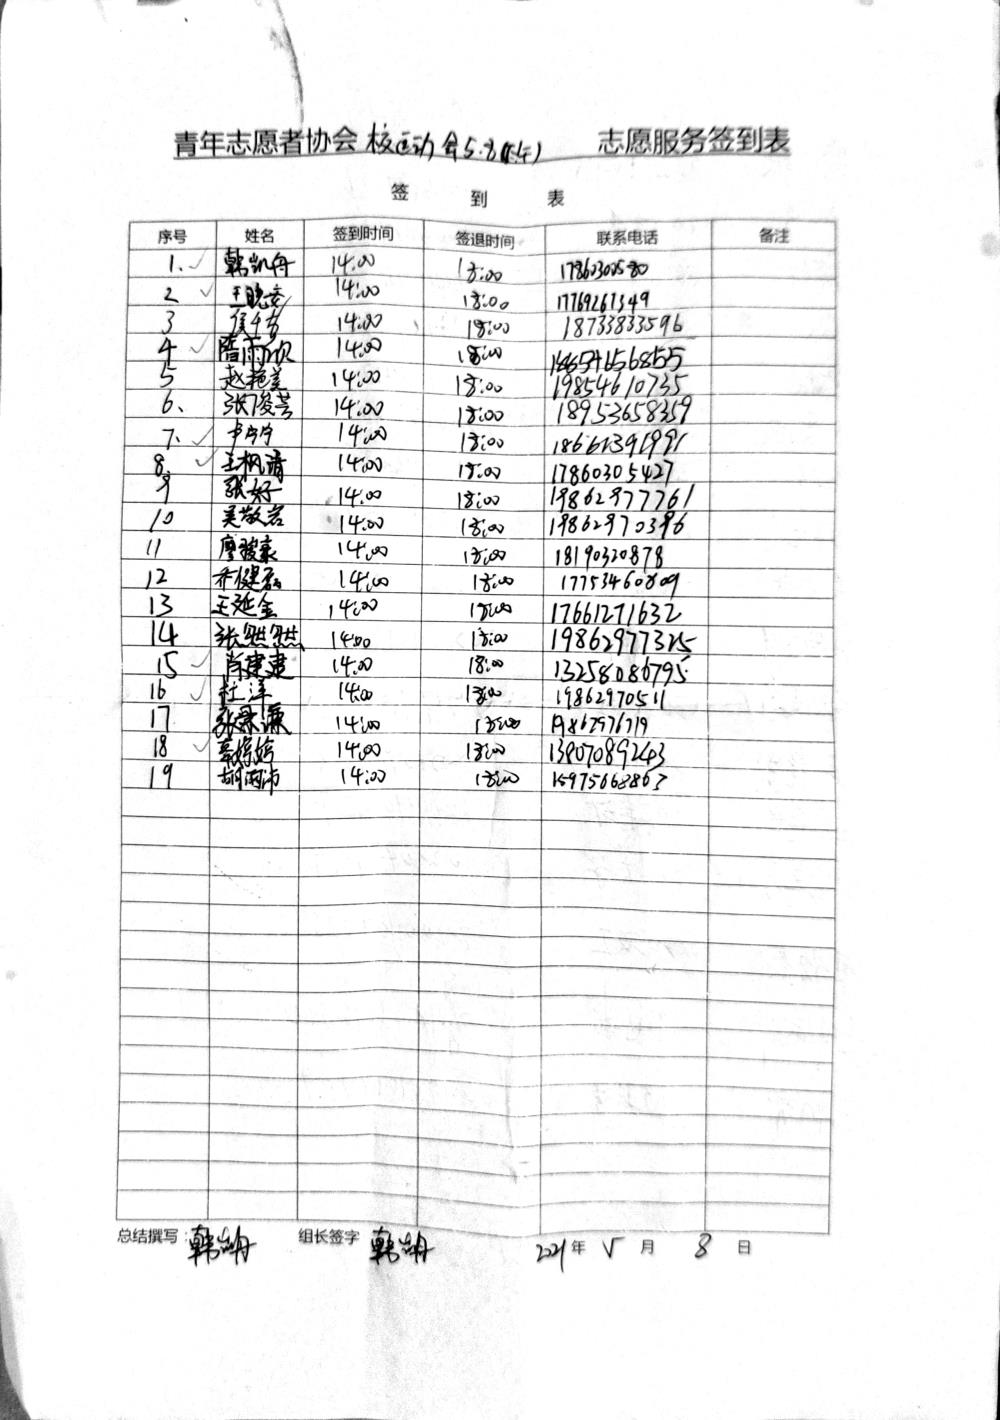 青年志愿者协会 校运动会5.8(下午) 志愿服务签到表
签 到 表
序号 姓名 签到时间 签退时间 联系电话 备注
1. 韩凯舟 14:00 18:00 17860300580
2 王晓安 14:00 18:00 17769267349
3 14:00 18:00 18733833596
4 隋雨欣 14:00 18:00
5 赵艳美 14:00 18:00 19854610735
6、 张俊芸 14:00 18:00 18953658359
7、 14:00 18:00 18661391991
8. 王枫清 14:00 18:00 17860305427
9 张好 14:00 18:00 19862977761
10 吴敬宕 14:00 18:00 19862970396
11 廖骏豪 14:00 18:00 18190320878
12 乔健磊 14:00 18:00 17753460809
13 王延金 14:00 18:00 17661271632
14 张然然 14:00 18:00 19862977325
15 肖建建 14:00 18:00 13258086795
16 杜洋 14:00 18:00 19862970511
17 张景谦 14:00 18:00 19862976719
18 高婷婷 14:00 18:00 13807089243
19 胡雨沛 14:00 18:00 15975668863
总结撰写：韩凯舟 组长签字 韩凯舟 2021年 5 月 8 日